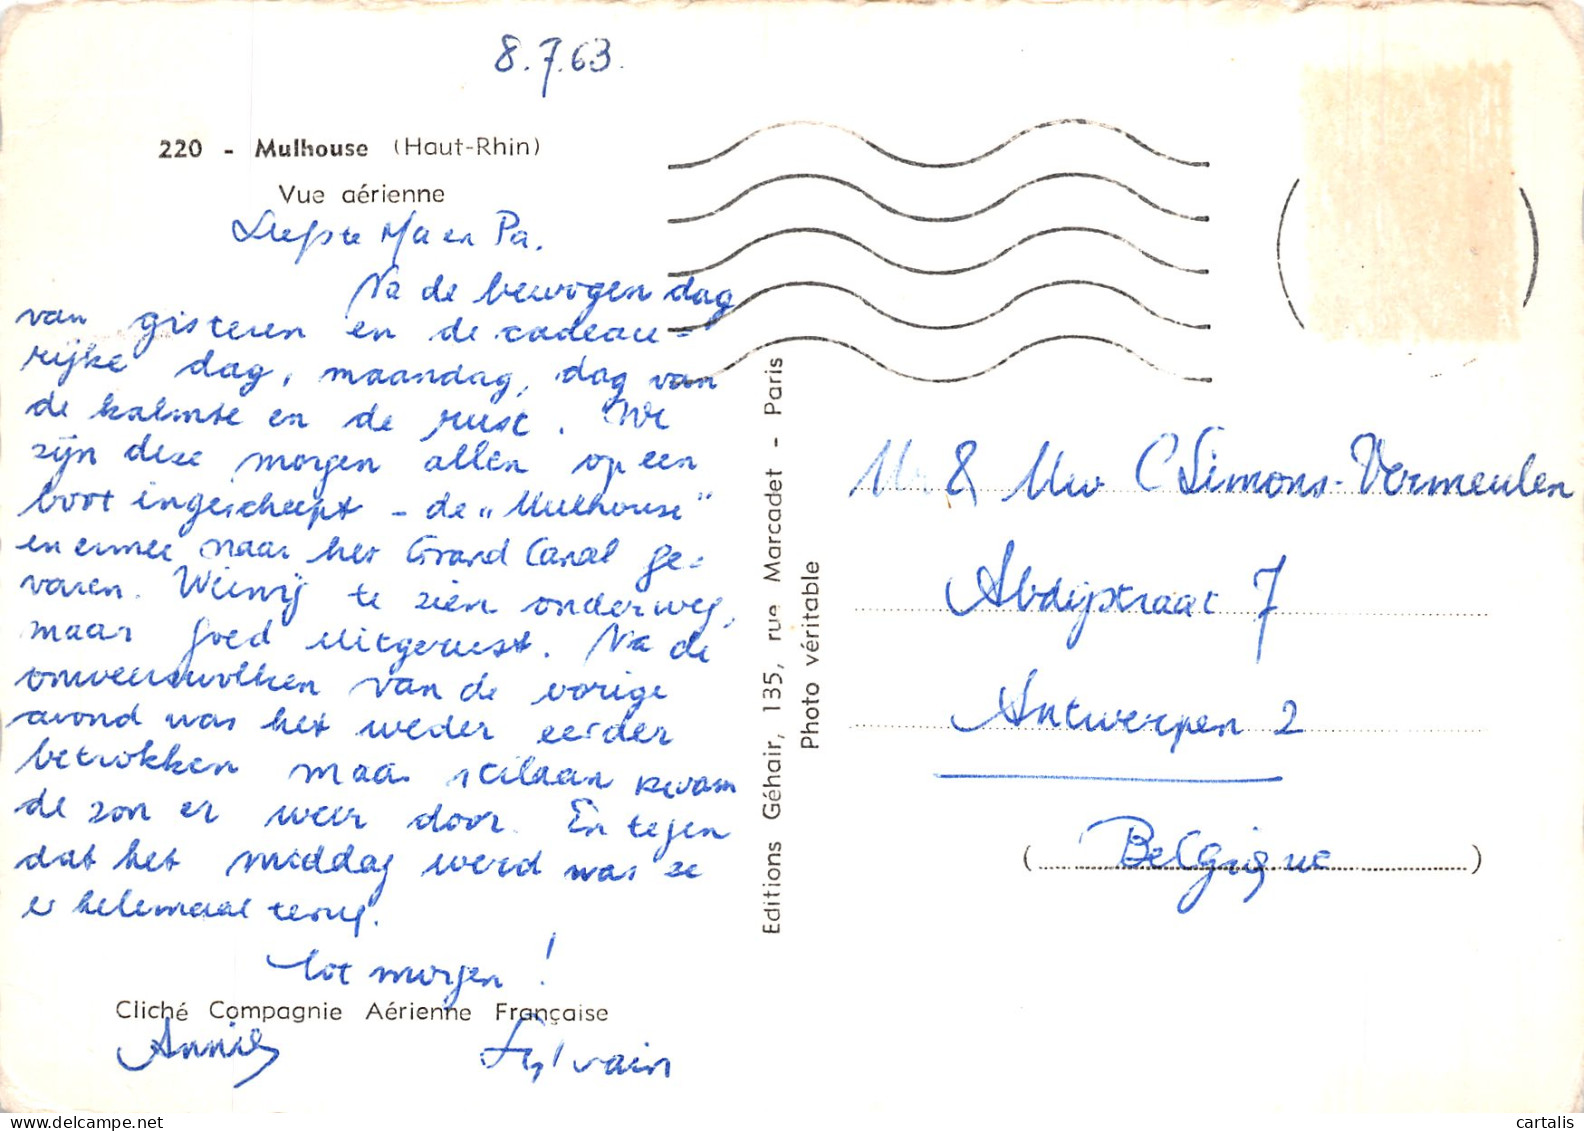 8.7.63.
220 - Mulhouse (Haut-Rhin)
Vue aérienne
Liefste Ma en Pa.
Na de bewogen dag
van gisteren en de cadeau-
rijke dag, maandag, dag van
de kalmte en de rust. We
zijn deze morgen allen op een
boot ingescheept - de „Mulhouse"
en ermee naar het Grand Canal ge-
varen. Weinig te zien onderweg,
maar goed uitgerust. Na de
onweerswolken van de vorige
avond was het weder eerder
betrokken maar stilaan kwam
de zon er weer door. En tegen
dat het middag werd was ze
er helemaal terug.
Tot morgen!
Cliché Compagnie Aérienne Française
Annie Sylvain
Editions Géhair, 135, rue Marcadet - Paris
Photo véritable
Mr & Mw C Simons-Vermeulen
Abdijstraat 7
Antwerpen 2
(Belgique)
cartalis